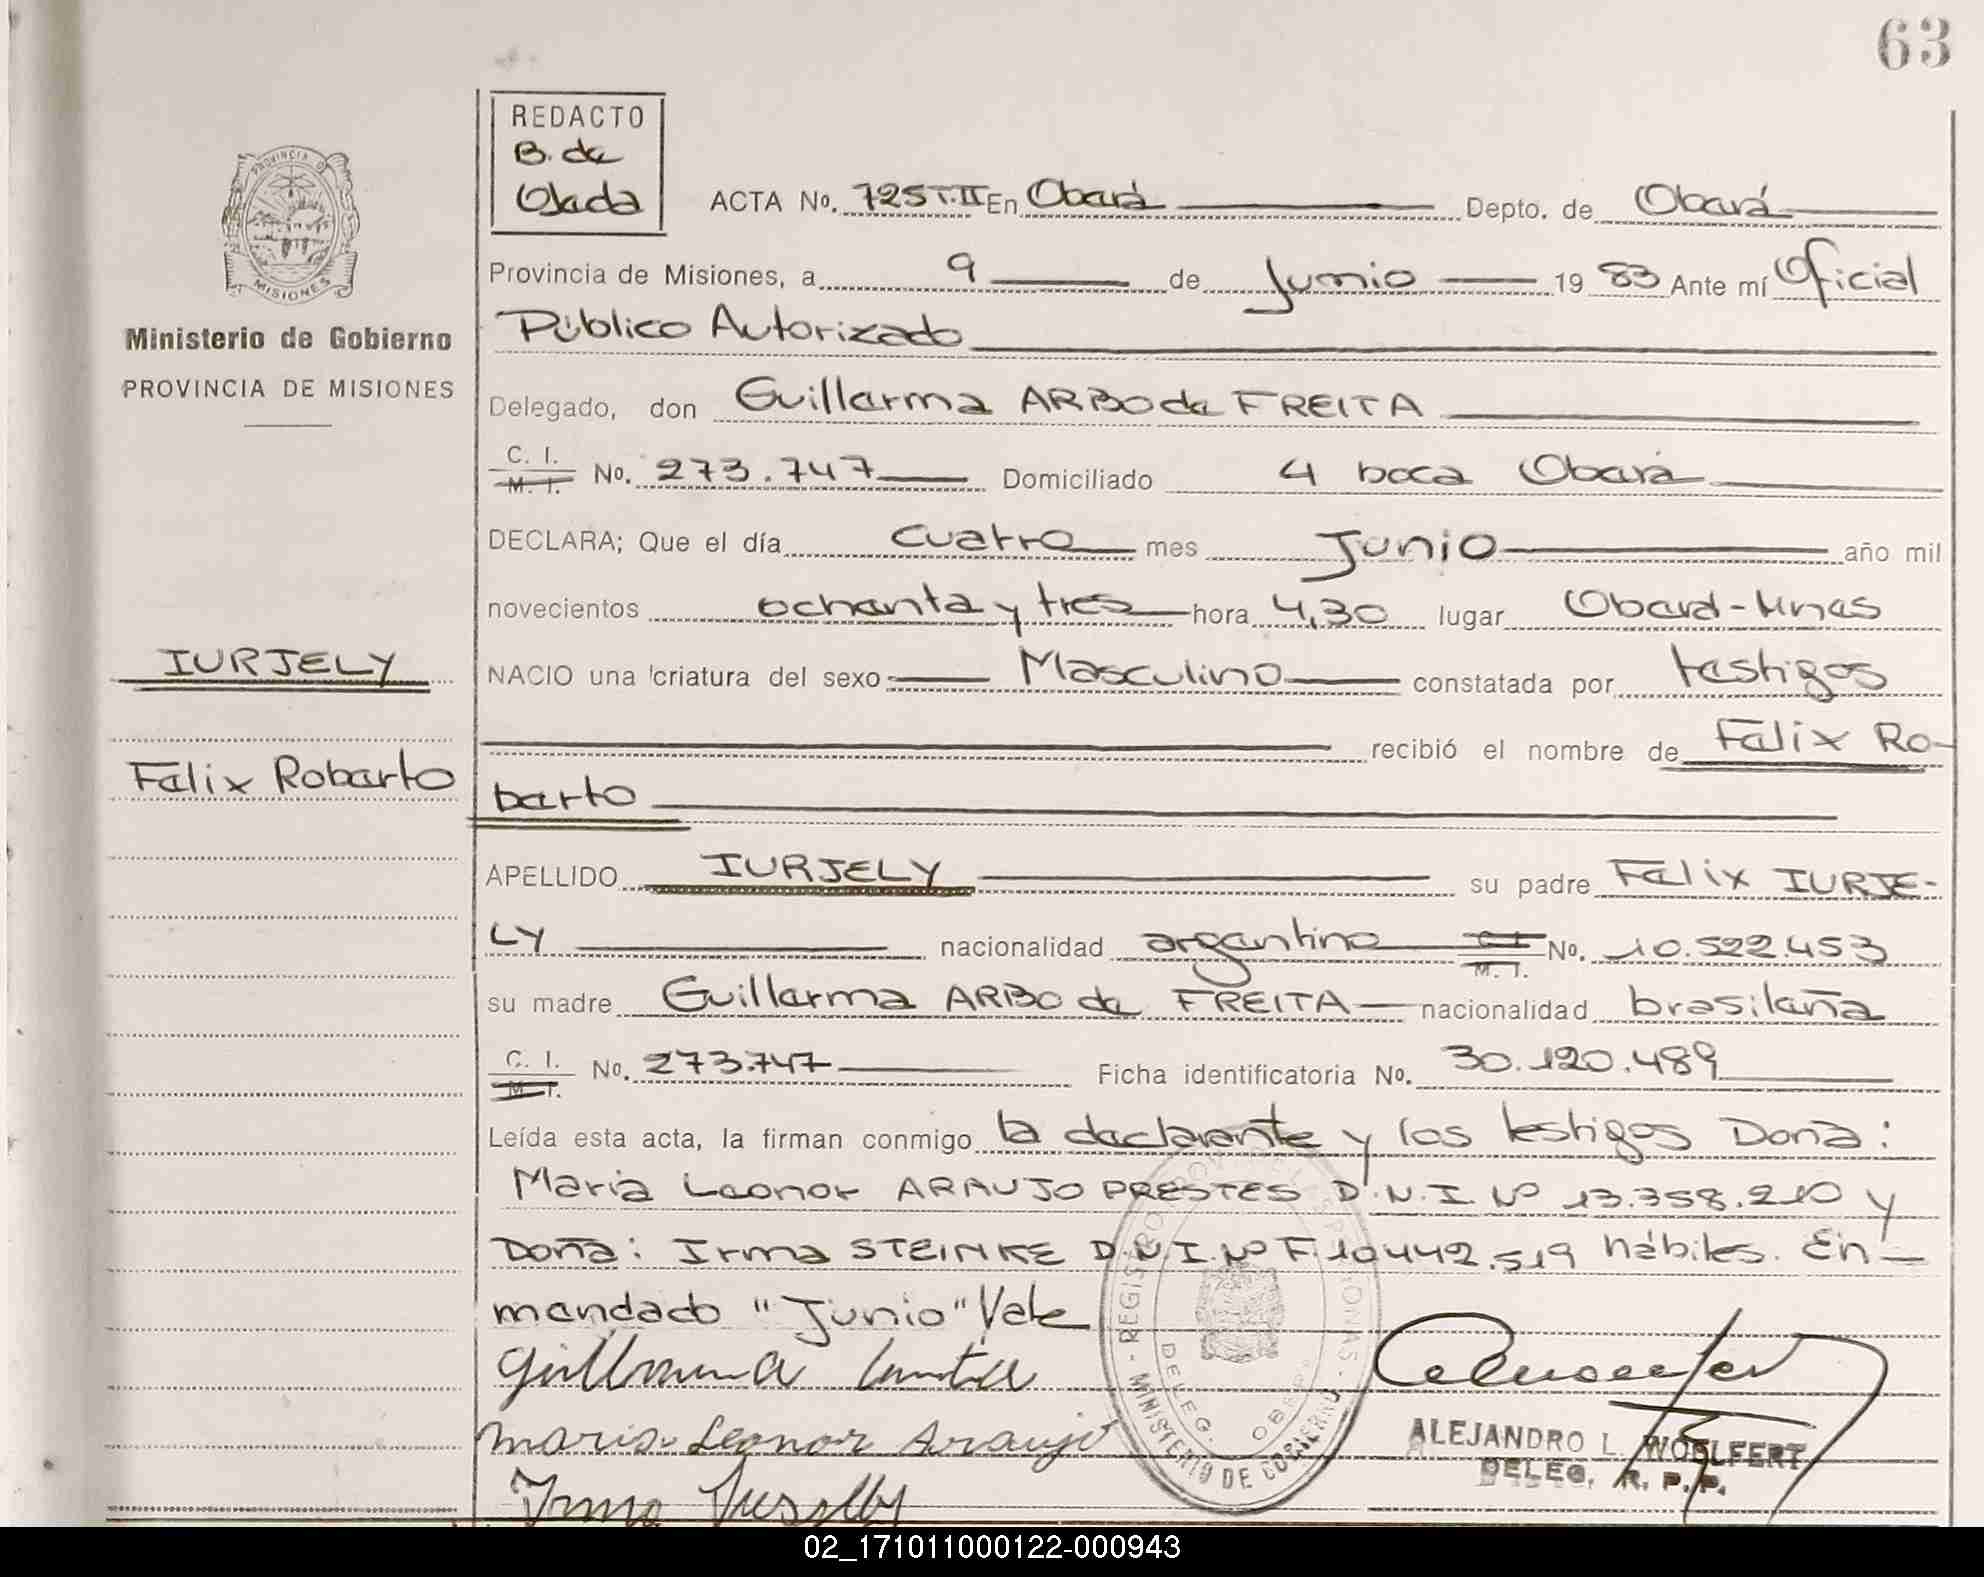 63
REDACTO
B. de
Ojeda
ACTA No. 725 T.II En Oberá Depto. de Oberá
Provincia de Misiones, a 9 de Junio 1983 Ante mí Oficial
Público Autorizado
Delegado, don Guillerma ARBO de FREITA
C. I.
M. I. No. 273.747 Domiciliado 4 boca Oberá
DECLARA; Que el día cuatro mes Junio año mil
novecientos ochenta y tres hora 4,30 lugar Oberá-Mnes
NACIO una criatura del sexo Masculino constatada por testigos
recibió el nombre de Felix Ro-
berto
APELLIDO IURJELY su padre Felix IURJE-
LY nacionalidad argentino C I
M. I. No. 10.522.453
su madre Guillerma ARBO de FREITA nacionalidad brasileña
C. I.
M. I. No. 273.747 Ficha identificatoria No. 30.120.489
Leída esta acta, la firman conmigo la declarante y los testigos Doña:
Maria Leonor ARAUJO PRESTES D.N.I. Nº 13.358.210 y
Doña: Irma STEINKE D.N.I. Nº F.10442.519 hábiles. En-
mendado "Junio" Vale
Maria Leonor Araujo
Irma
PROVINCIA DE
MISIONES
Ministerio de Gobierno
PROVINCIA DE MISIONES
IURJELY
Felix Roberto
MINISTERIO DE GOBIERNO
DELEG. OBERA
ALEJANDRO L. WOELFERT
DELEG. R. P. P.
02_171011000122-000943